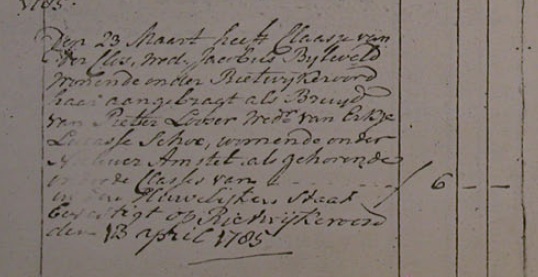 1785.
Den 23 Maart heeft Claasje van
der Clos, Wed. Jacobus Byleveld
Wonende onder Rietwijkeroord
haar aangebragt als Bruyd
van Pieter Looser Wedr. van Eefje
Lucasse Schoe, wonende onder
Nieuwer Amstel, als gehorende
onder de Classes van — — — / 6 — —
in den Huwelijken Staat
bevestigt op Rietwijkeroord
den 13 april 1785